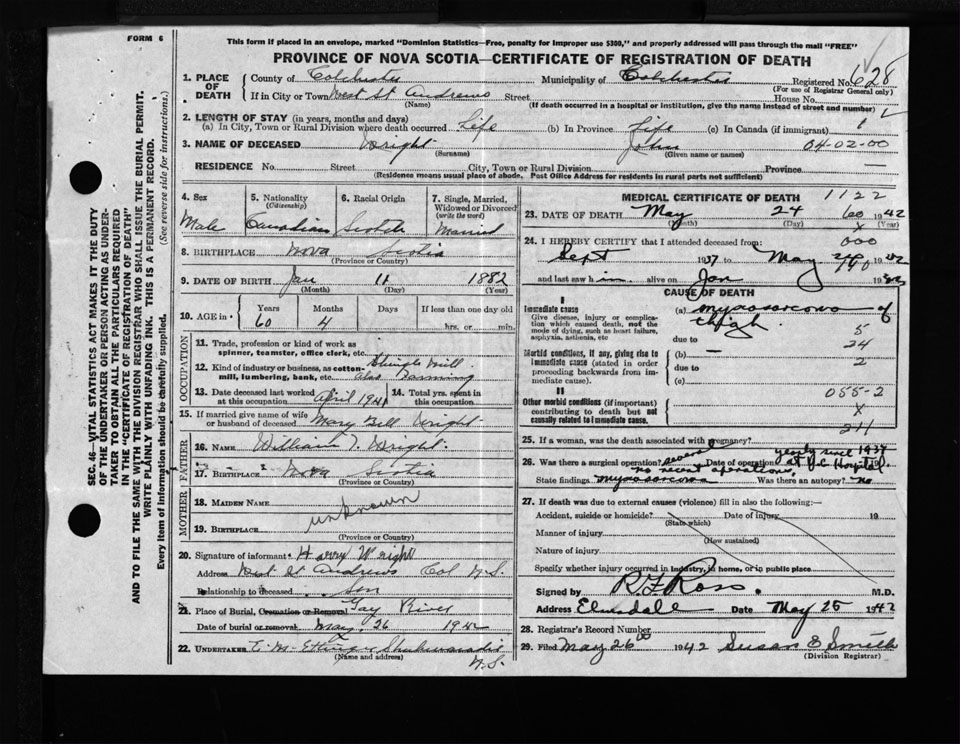 FORM 6
This form if placed in an envelope, marked "Dominion Statistics—Free, penalty for improper use $300," and properly addressed will pass through the mail "FREE"
PROVINCE OF NOVA SCOTIA—CERTIFICATE OF REGISTRATION OF DEATH
SEC. 46—VITAL STATISTICS ACT MAKES IT THE DUTY
OF THE UNDERTAKER OR PERSON ACTING AS UNDER-
TAKER TO OBTAIN ALL THE PARTICULARS REQUIRED
IN THE "CERTIFICATE OF REGISTRATION OF DEATH"
AND TO FILE THE SAME WITH THE DIVISION REGISTRAR WHO SHALL ISSUE THE BURIAL PERMIT.
WRITE PLAINLY WITH UNFADING INK. THIS IS A PERMANENT RECORD.
Every item of information should be carefully supplied. (See reverse side for instructions.)
1. PLACE OF DEATH
County of Colchester Municipality of Colchester Registered No. 628
(For use of Registrar General only)
If in City or Town West St Andrews Street House No.
(Name) (If death occurred in a hospital or institution, give the name instead of street and number)
2. LENGTH OF STAY (in years, months and days)
(a) In City, Town or Rural Division where death occurred Life (b) In Province Life (c) In Canada (if immigrant)
3. NAME OF DECEASED Wright John 04-02-00
(Surname) (Given name or names)
RESIDENCE No. Street City, Town or Rural Division Province
(Residence means usual place of abode. Post Office Address for residents in rural parts not sufficient)
4. Sex Male
5. Nationality (Citizenship) Canadian
6. Racial Origin Scotch
7. Single, Married, Widowed or Divorced (write the word) Married
8. BIRTHPLACE Nova Scotia
(Province or Country)
9. DATE OF BIRTH Jan 11 1882
(Month) (Day) (Year)
10. AGE in Years 60 Months 4 Days If less than one day old
hrs. or min.
OCCUPATION
11. Trade, profession or kind of work as
spinner, teamster, office clerk, etc.
12. Kind of industry or business, as cotton- Shingle Mill
mill, lumbering, bank, etc. also Farming
13. Date deceased last worked at this occupation April 1941
14. Total yrs. spent in this occupation
15. If married give name of wife
or husband of deceased Mary Bell Wright
FATHER
16. NAME William T. Wright
17. BIRTHPLACE Nova Scotia
(Province or Country)
MOTHER
18. MAIDEN NAME
unknown
19. BIRTHPLACE
(Province or Country)
20. Signature of informant Harry Wright
Address West St Andrews Col N.S.
Relationship to deceased Son
21. Place of Burial, Cremation or Removal Gay River
Date of burial or removal May 26 1942
22. UNDERTAKER
(Name and address)
N.S.
MEDICAL CERTIFICATE OF DEATH 1122
23. DATE OF DEATH May 24 60 1942
(Month) (Day) (Year)
X
24. I HEREBY CERTIFY that I attended deceased from: 000
Sept 1937 to May 1942
and last saw him alive on Jan
CAUSE OF DEATH
Immediate cause
Give disease, injury or complica-
tion which caused death, not the
mode of dying, such as heart failure,
asphyxia, asthenia, etc
(a) myxosarcoma of
thigh 5
due to 24
Morbid conditions, if any, giving rise to
immediate cause (stated in order
proceeding backwards from im-
mediate cause).
(b) —
due to 2
(c)
II
Other morbid conditions (if important)
contributing to death but not
causally related to immediate cause.
055-2
X
211
25. If a woman, was the death associated with pregnancy?
26. Was there a surgical operation? several Date of operation yearly since 1937
no recent operations, at V.G. Hospital 19
State findings myxosarcoma Was there an autopsy? no
27. If death was due to external causes (violence) fill in also the following:—
Accident, suicide or homicide? Date of injury 19
(State which)
Manner of injury
(How sustained)
Nature of injury
Specify whether injury occurred in industry, in home, or in public place
Signed by R F Ross. M.D.
Address Elmsdale Date May 25 1942
28. Registrar's Record Number
29. Filed May 26 1942 Susan E Smith
(Division Registrar)